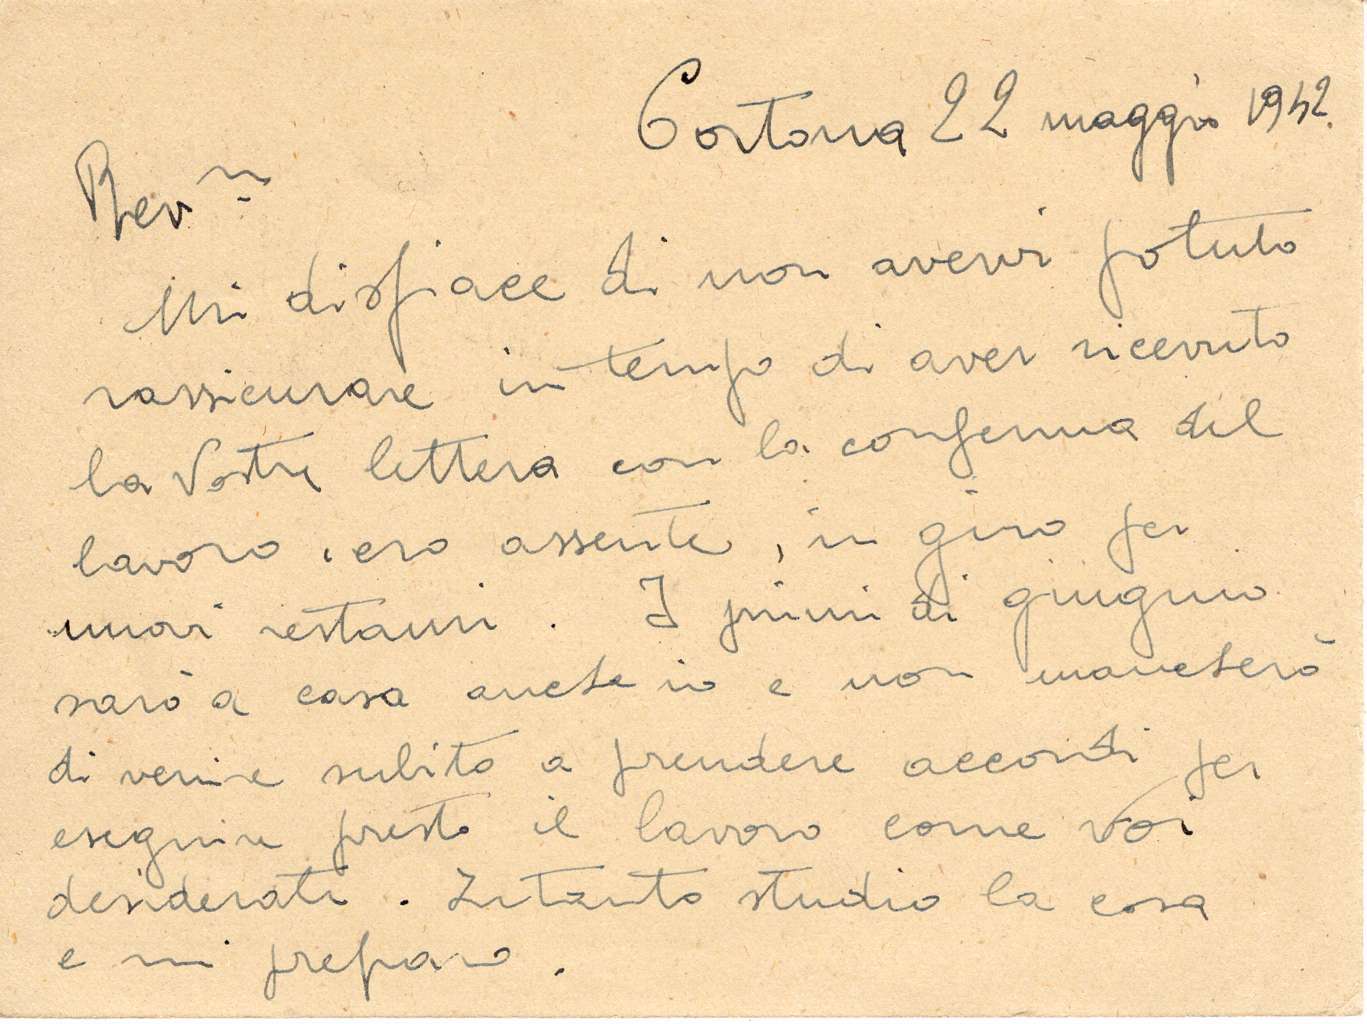 Cortona 22 maggio 1942.
Rev.n
Mi dispiace di non avervi potuto
rassicurare in tempo di aver ricevuto
la Vostra lettera con la conferma del
lavoro, ero assente, in giro per
nuovi restauri. I primi di giugno
sarò a casa anche io e non mancherò
di venire subito a prendere accordi per
eseguire presto il lavoro come Voi
desiderati. Intanto studio la cosa
e mi preparo.